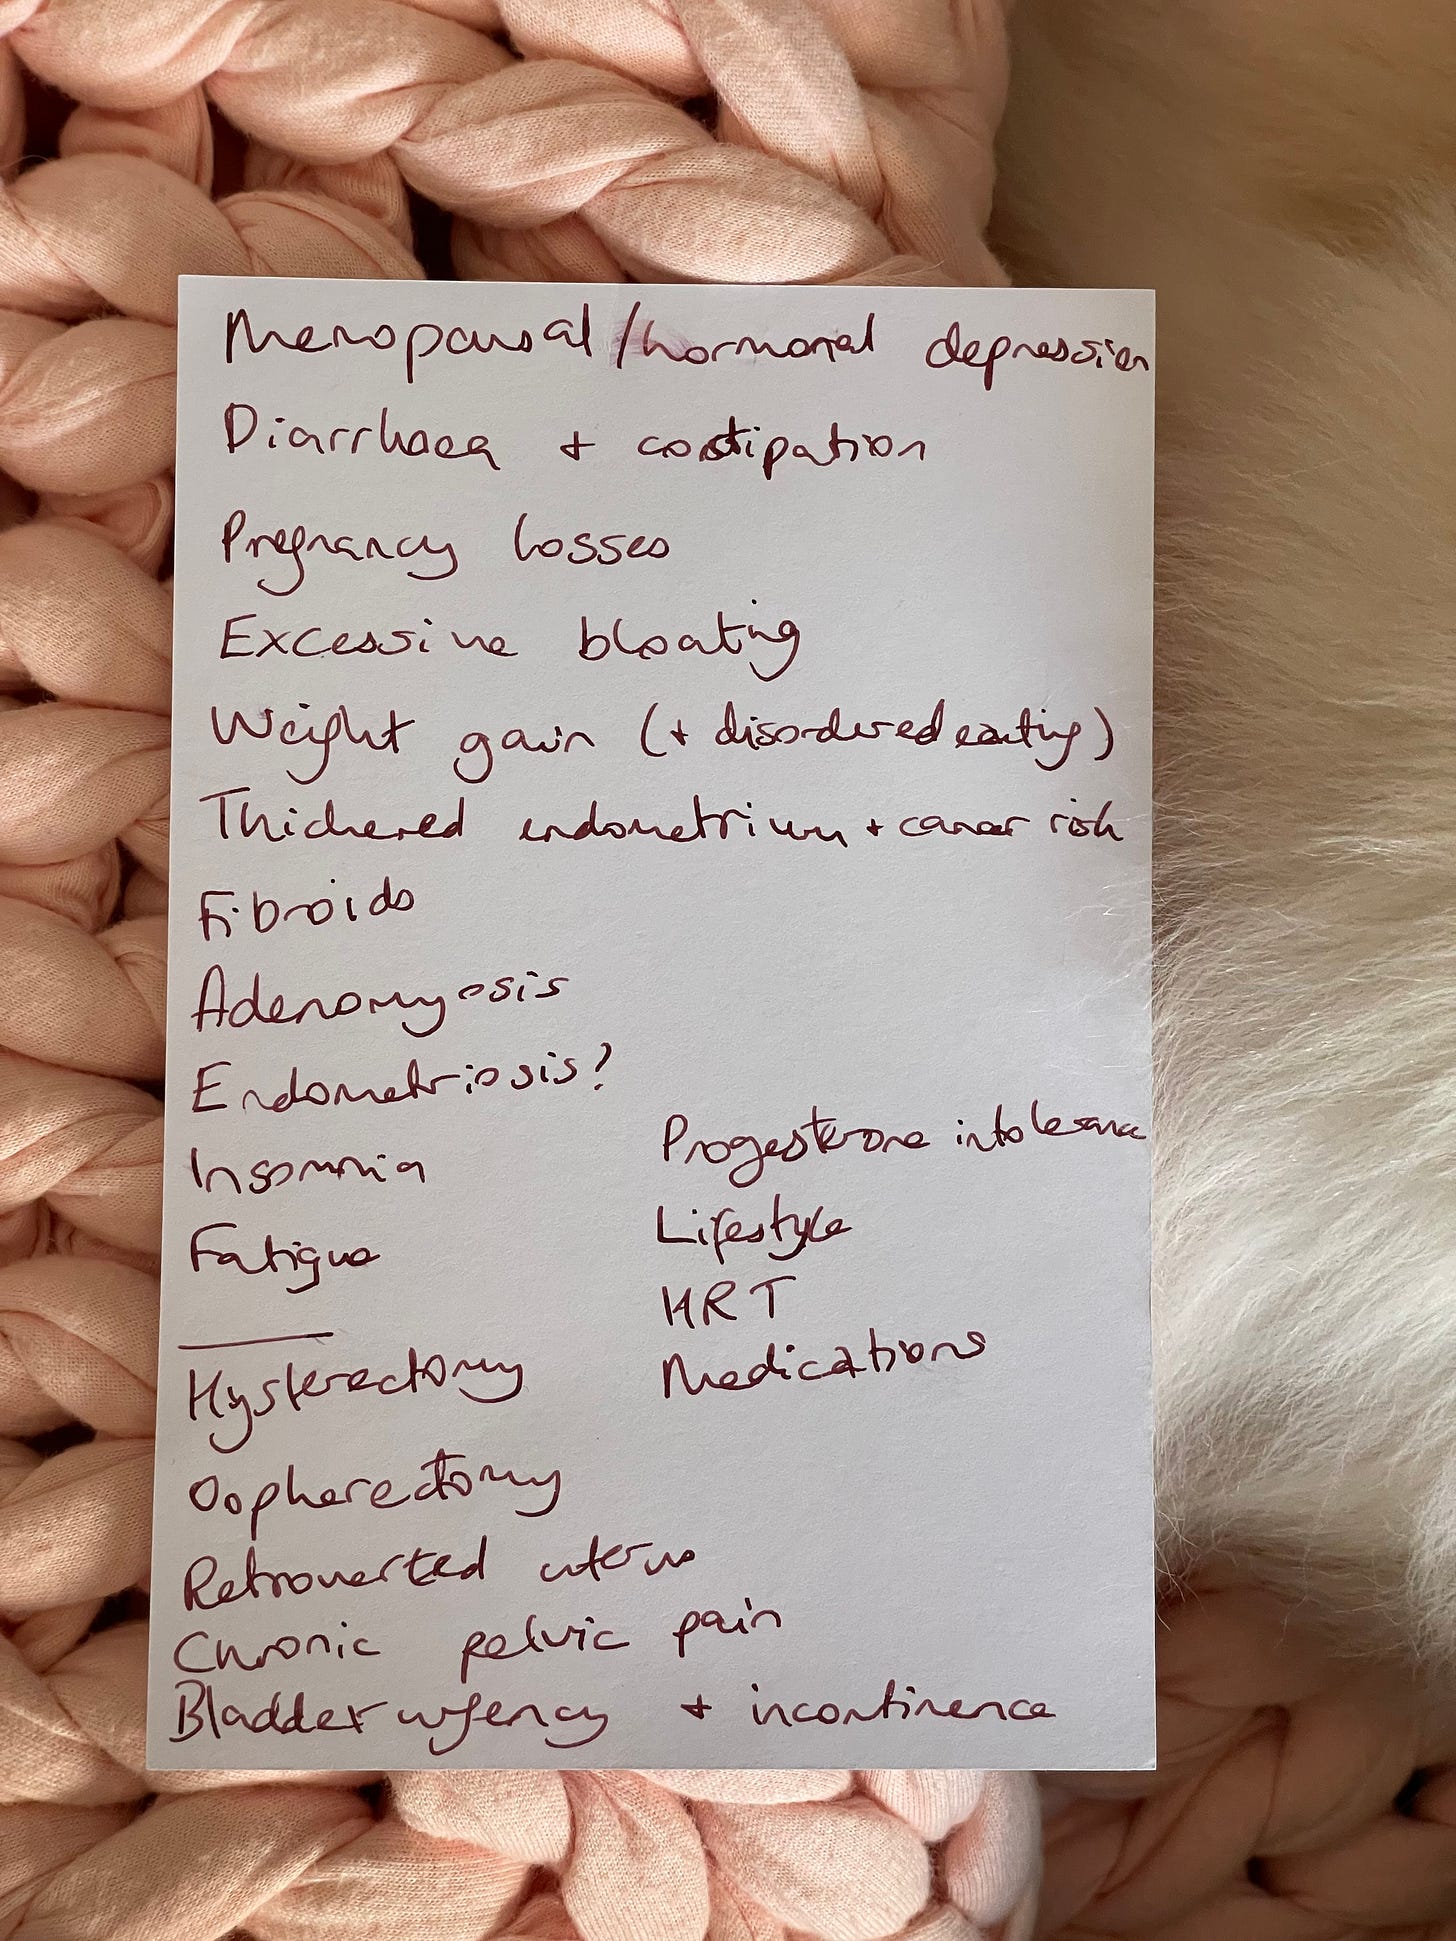 Menopausal/hormonal depression
Diarrhoea + costipation
Pregnancy losses
Excessive bloating
Weight gain (+ disordered eating)
Thickened endometrium + cancer risk
Fibroids
Adenomyosis
Endometriosis?
Insomnia
Fatigue
Progesterone intolerance
Lifestyle
HRT
Medications
Hysterectomy
Oopherectomy
Retroverted uterus
Chronic pelvic pain
Bladder urgency + incontinence